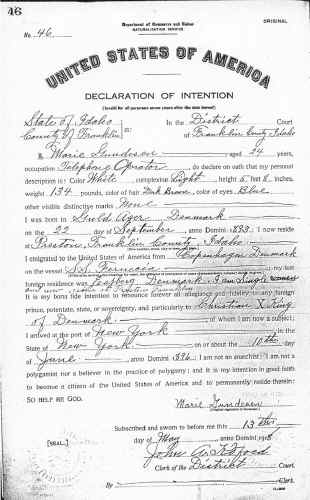 46
ORIGINAL
Department of Commerce and Labor
NATURALIZATION SERVICE
No. 46
UNITED STATES OF AMERICA
DECLARATION OF INTENTION
(Invalid for all purposes seven years after the date hereof)
State of Idaho In the District Court
County of Franklin ss: of Franklin County Idaho
I, Marie Gundersen, aged 34 years,
occupation Telephone Oprator, do declare on oath that my personal
description is: Color White, complexion Light, height 5 feet inches,
weight 134 pounds, color of hair Brown, color of eyes Blue
other visible distinctive marks None
I was born in Denmark
on the 22 day of September, anno Domini 1883; I now reside
at Preston, Franklin County, Idaho.
I emigrated to the United States of America from Copenhagen Denmark
on the vessel S.S.; my last
foreign residence was Denmark. I am Single
It is my bona fide intention to renounce forever all allegiance and fidelity to any foreign
prince, potentate, state, or sovereignty, and particularly to Christian X King
of Denmark, of whom I am now a subject;
I arrived at the port of New York, in the
State of New York, on or about the 10th day
of June, anno Domini; I am not an anarchist; I am not a
polygamist nor a believer in the practice of polygamy; and it is my intention in good faith
to become a citizen of the United States of America and to permanently reside therein:
SO HELP ME GOD.
Marie Gundersen
Subscribed and sworn to before me this 13th
[SEAL.] day of May, anno Domini 1918
John A.
Clerk of the District Court.